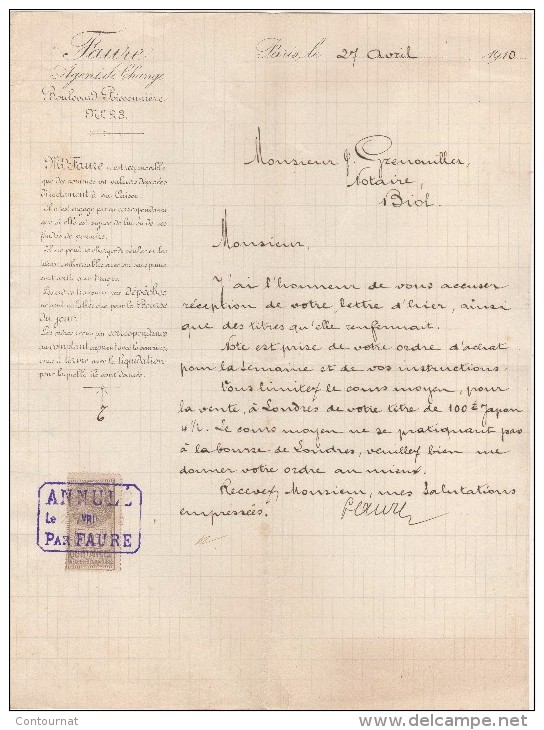 Faure
Agent de Change
Boulevard Poissonnière
N° 23.
Paris, le 27 Avril 1910
Monsieur J. Grenouiller,
Notaire,
Biol.
Mr Faure n'est responsable
que des sommes ou valeurs déposées
directement à sa Caisse.
Il n'est engagé par sa correspondance
que si elle est signée de lui ou de ses
fondés de pouvoirs.
Les ordres transmis par Dépêches
ne sont valables que pour la Bourse
du jour.
Les ordres reçus par correspondance
au comptant
ceux à terme avec la liquidation
pour laquelle ils sont donnés.
Monsieur,
J'ai l'honneur de vous accuser
réception de votre lettre d'hier, ainsi
que des titres qu'elle renfermait.
Note est prise de votre ordre d'achat
pour la semaine et de vos instructions.
Vous limitez le cours moyen, pour
la vente, à Londres de votre titre de 100£ Japon
4%. Le cours moyen ne se pratiquant pas
à la bourse de Londres, veuillez bien me
donner votre ordre au mieux.
Recevez, Monsieur, mes salutations
empressées.
Faure
ANNULÉ
Le AVRI
PAR FAURE
Contournat
www.delcampe.net